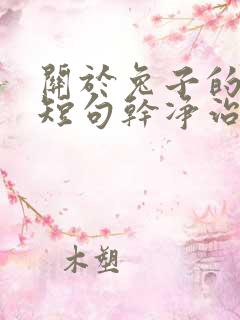 關於兔子的
短句幹凈治
木塑